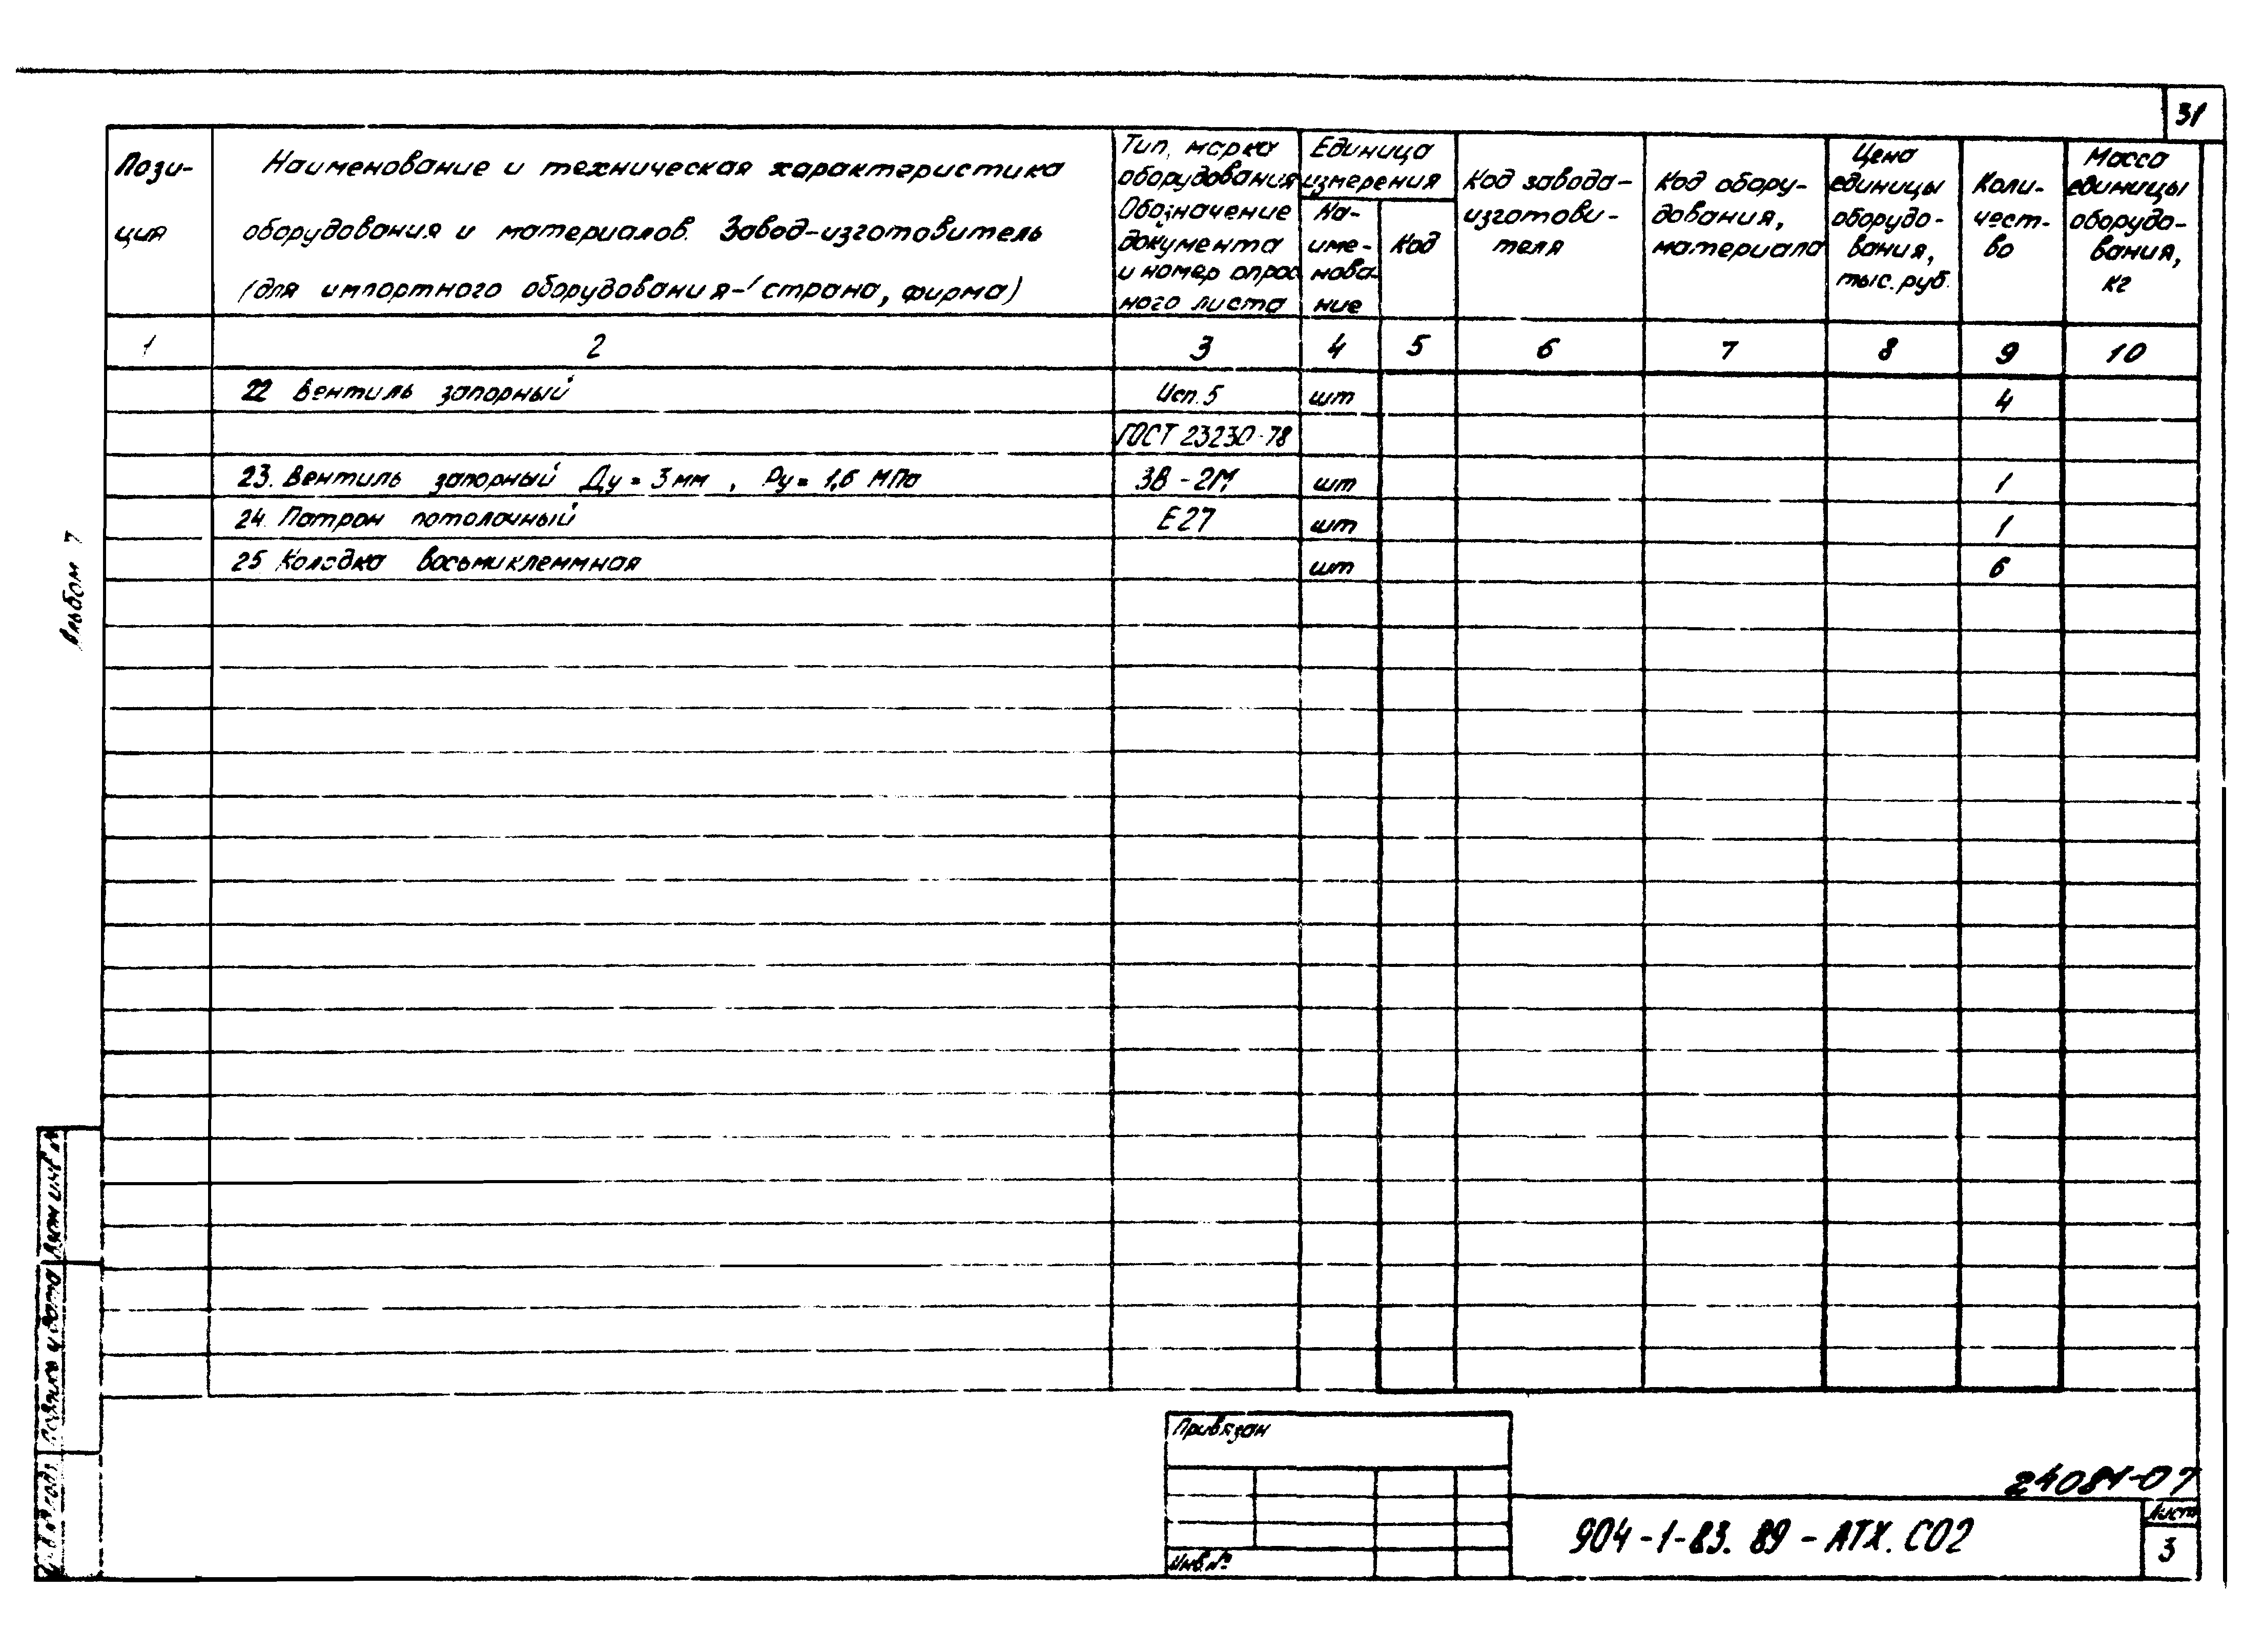 31
Пози-
ция
Наименование и техническая характеристика
оборудования и материалов. Завод-изготовитель
(для импортного оборудования - страна, фирма)
Тип, марка
оборудования
Обозначение
документа
и номер опрос
ного листа
Единица
измерения
На-
име-
нова-
ние
Код
Код завода-
изготови-
теля
Код обору-
дования,
материала
Цена
единицы
оборудо-
вания,
тыс. руб.
Коли-
чест-
во
Масса
единицы
оборудо-
вания,
кг
1 2 3 4 5 6 7 8 9 10
22 Вентиль запорный Исп. 5 шт 4
ГОСТ 23230-78
23. Вентиль запорный Ду = 3 мм , Ру = 1,6 МПа ЗВ - 2М шт 1
24. Патрон потолочный Е27 шт 1
25 Колодка восьмиклеммная шт 6
Альбом 7
Взам инв №
Подпись и дата
Инв № подл.
Привязан
Инв. №
24081-07
904-1-83. 89 - АТХ. СО2
Лист
3